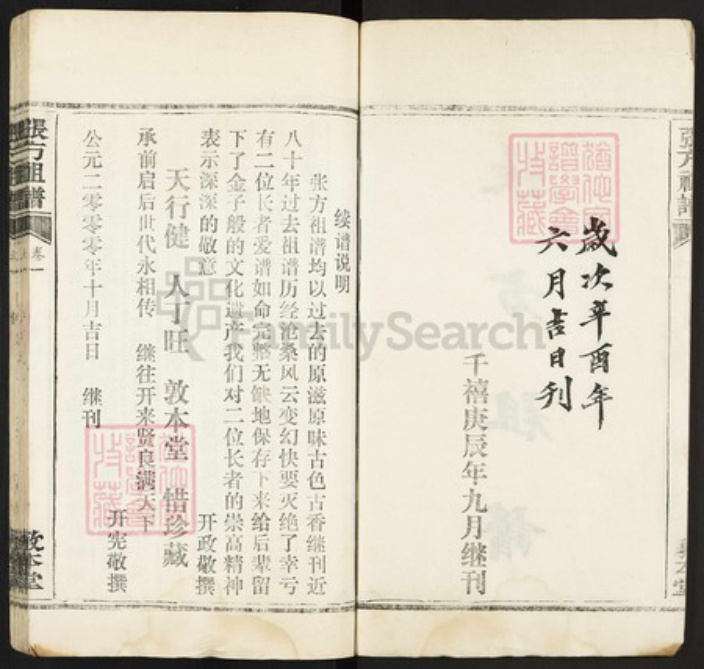 歲次辛酉年
六月吉日刊
千禧庚辰年九月继刊
续谱说明
张方祖谱均以过去的原滋原味古色古香继刊近
八十年过去祖谱历经沧桑风云变幻快要灭绝了幸亏
有二位长者爱谱如命完整无缺地保存下来给后辈留
下了金子般的文化遗产我们对二位长者的崇高精神
表示深深的敬意
开政敬撰
天行健 人丁旺 敦本堂 惜珍藏
承前启后世代永相传 继往开来贤良满天下
开宪敬撰
公元二零零零年十月吉日 继刊
張方祖譜
卷一
敦本堂
FamilySearch